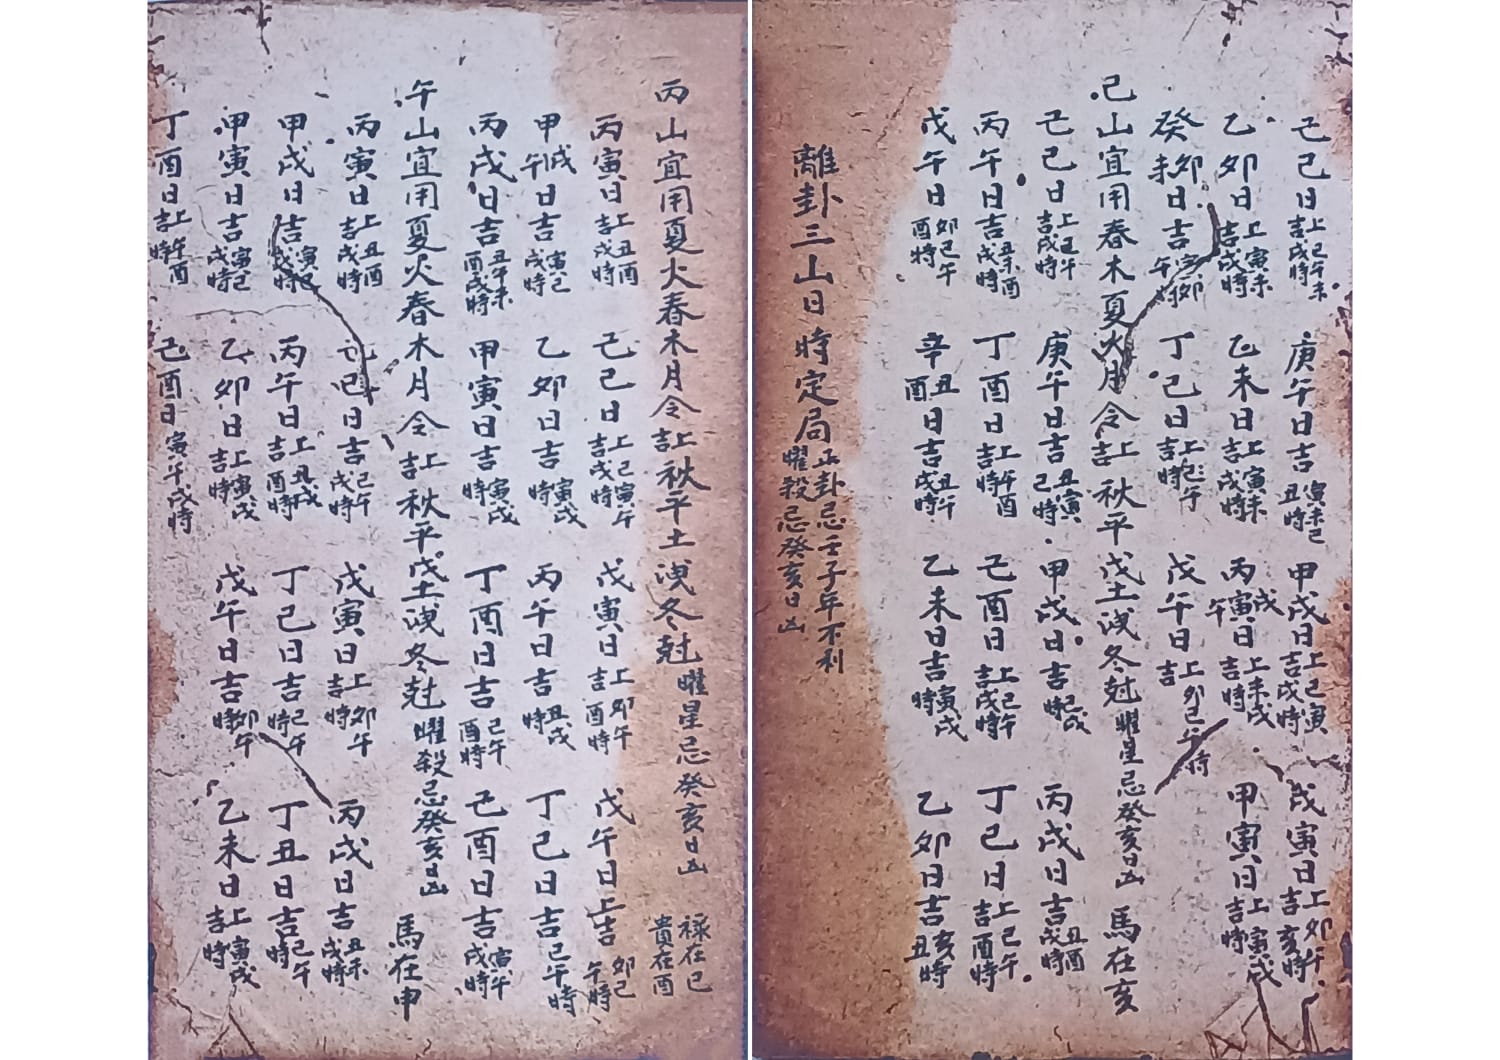 己巳日上吉巳午未戌時 庚午日吉寅未己丑時 甲戌日上吉巳寅戌時 戊寅日上吉卯午亥時
乙卯日上吉寅未戌時 乙未日上吉寅未戌時 丙寅戌午日上吉未戌時 甲寅日上吉寅戌時
癸卯未日吉寅卯午時 丁巳日上吉巳午時 戊午日上吉卯巳午時
巳山宜用春木夏火月令上吉秋平戊土洩冬尅曜星忌癸亥日凶 馬在亥
己巳日上吉巳午戌時 庚午日吉丑寅己時 甲戌日吉巳戌時 丙戌日吉丑酉戌時
丙午日吉丑未酉戌時 丁酉日上吉午酉時 己酉日上吉巳午戌時 丁巳日上吉巳午酉時
戊午日卯巳午酉時 辛丑酉日吉丑午戌時 乙未日吉寅戌時 乙卯日吉亥丑時
離卦三山日時定局 正卦忌壬子年不利
曜殺忌癸亥日凶
丙山宜用夏火春木月令上吉秋平土洩冬尅曜星忌癸亥日凶 祿在巳
貴在酉
丙寅日上吉丑酉戌時 己巳日上吉巳寅午戌時 戊寅日上吉卯午酉時 戊午日上吉卯巳午時
甲戌午日吉寅巳戌時 乙卯日吉寅戌時 丙午日吉丑戌時 丁巳日吉巳午時
丙戌日吉丑午未酉戌時 甲寅日吉寅戌時 丁酉日吉巳午酉時 己酉日吉寅午戌時
午山宜用夏火春木月令上吉秋平戊土洩冬尅曜殺忌癸亥日凶 馬在申
丙寅日上吉丑酉戌時 己巳日吉巳午戌時 戊寅日上吉卯午時 丙戌日吉丑未戌時
甲戌日吉寅巳戌時 丙午日上吉丑戌酉時 丁巳日吉巳午時 丁丑日吉巳午時
甲寅日吉寅巳戌時 乙卯日上吉寅戌時 戊午日吉卯午時 乙未日上吉寅戌時
丁酉日上吉午酉時 己酉日寅午戌時